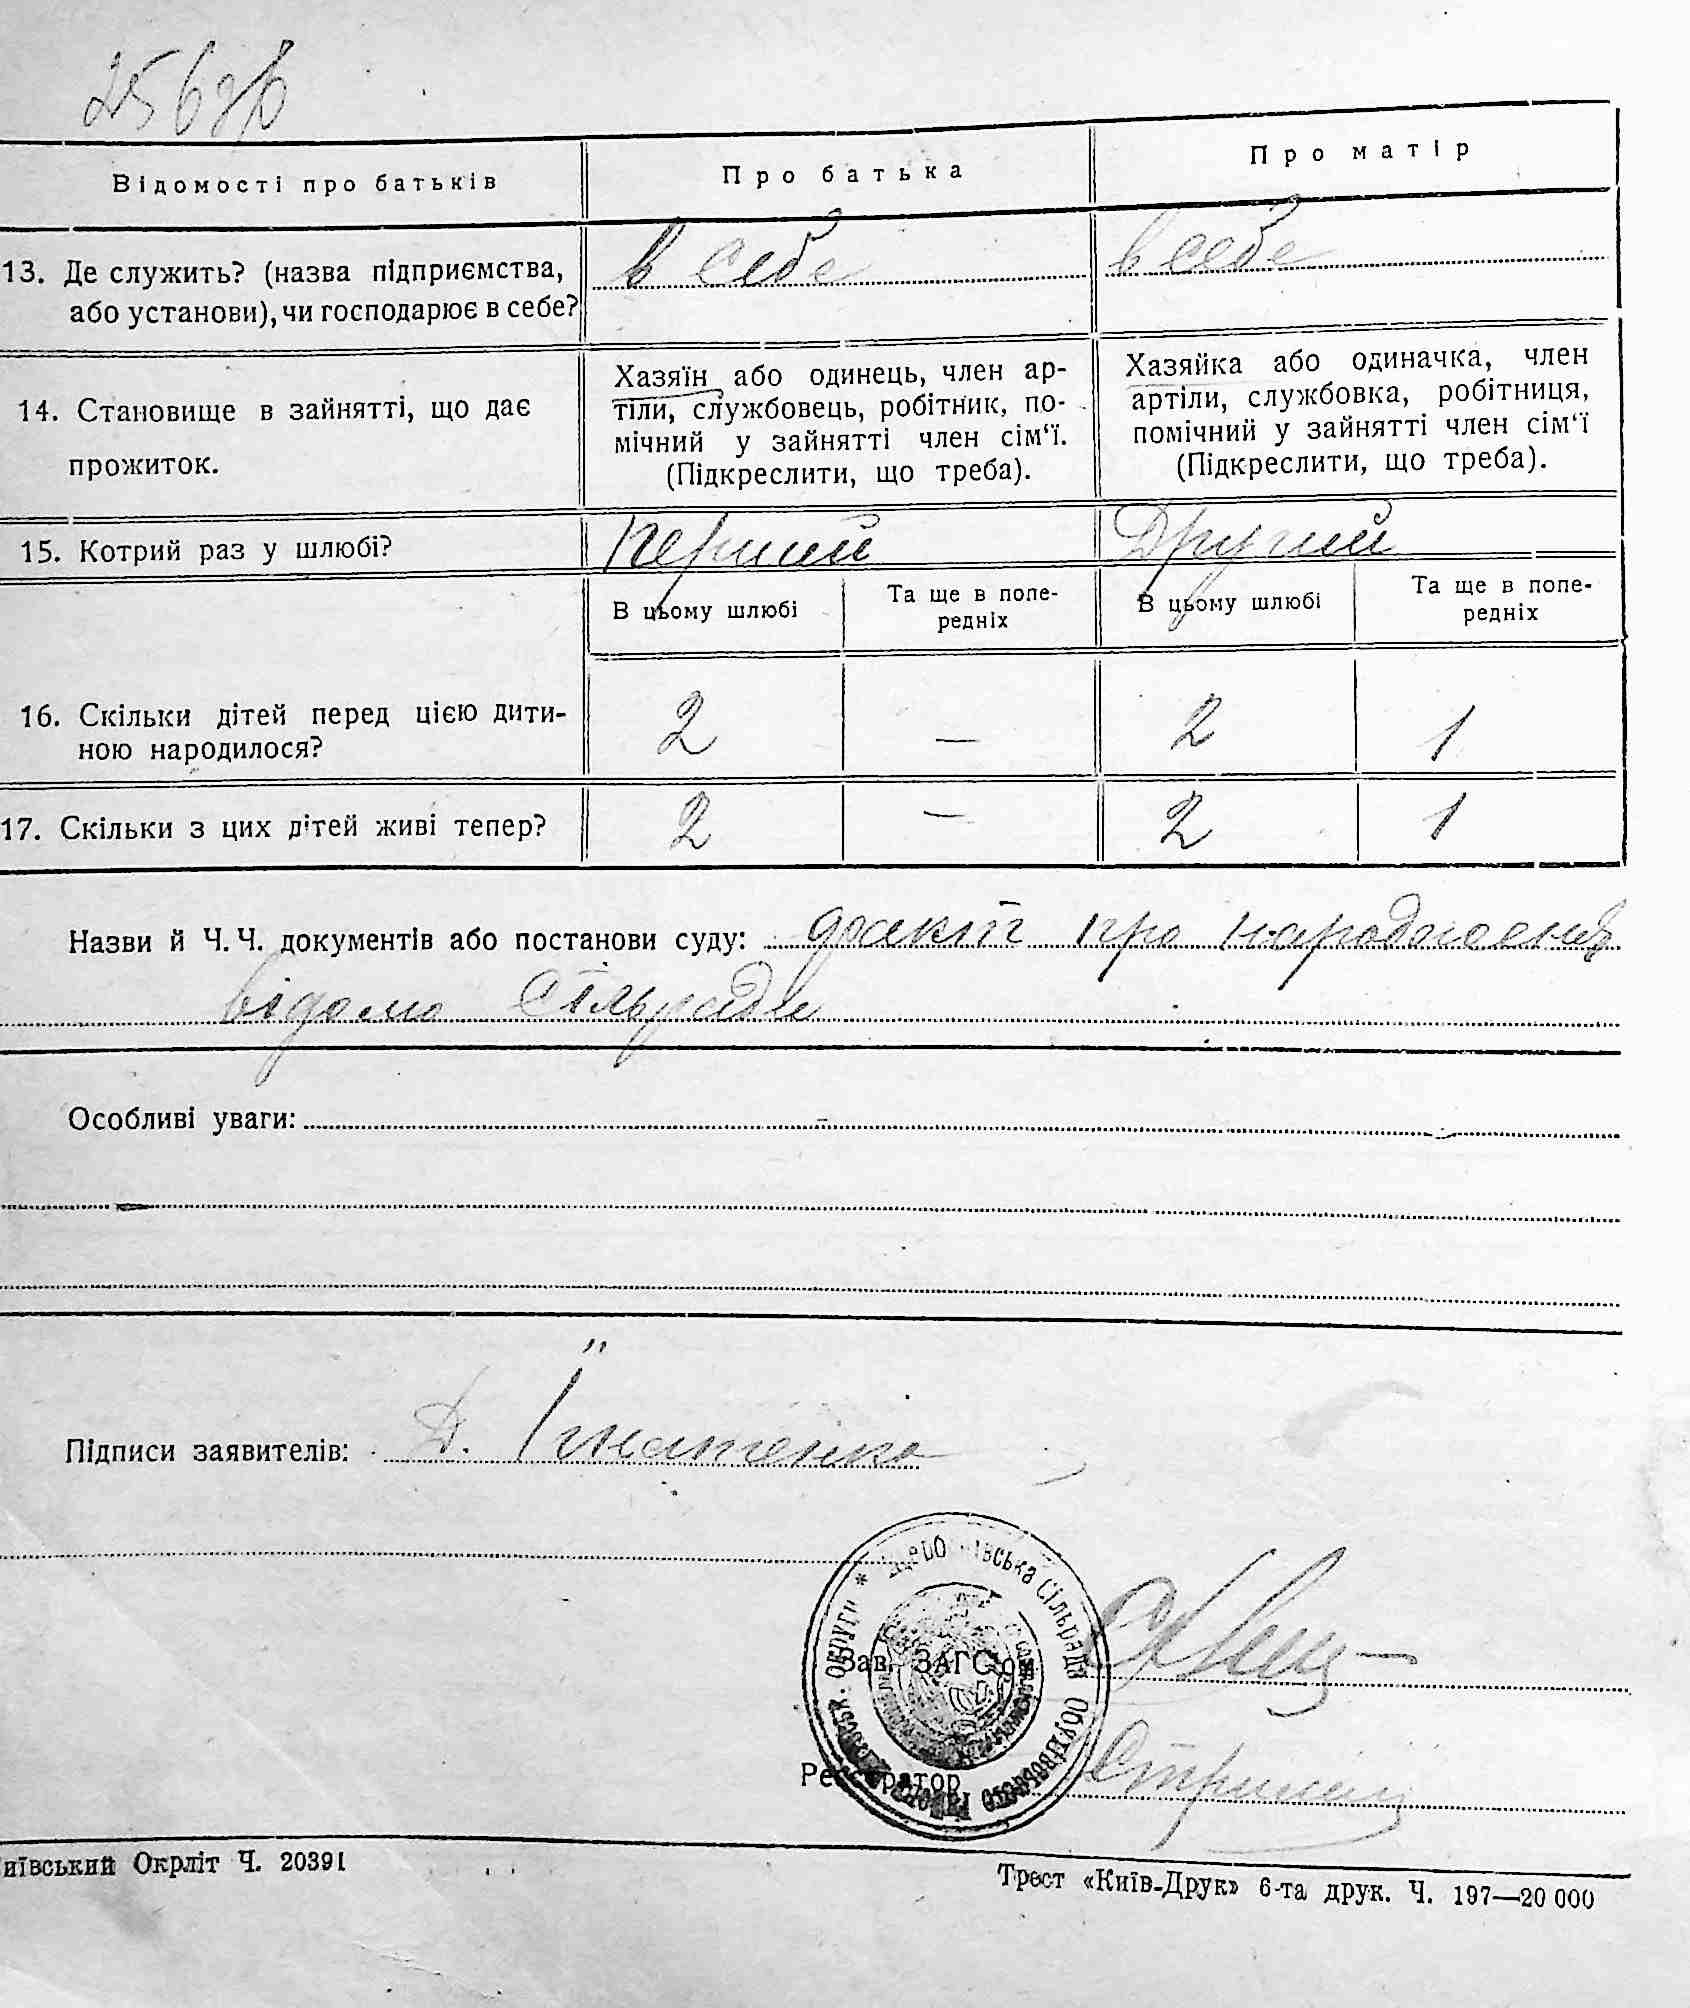 Відомості про батьків
Про батька
Про матір
13. Де служить? (назва підприємства,
або установи), чи господарює в себе?
в себе
в себе
14. Становище в зайнятті, що дає
прожиток.
Хазяїн або одинець, член ар-
тіли, службовець, робітник, по-
мічний у зайнятті член сім‘ї.
(Підкреслити, що треба).
Хазяйка або одиначка, член
артіли, службовка, робітниця,
помічний у зайнятті член сім‘ї
(Підкреслити, що треба).
15. Котрий раз у шлюбі?
Перший
Другий
В цьому шлюбі
Та ще в попе-
редніх
В цьому шлюбі
Та ще в попе-
редніх
16. Скільки дітей перед цією дити-
ною народилося?
2
—
2
1
17. Скільки з цих дітей живі тепер?
2
—
2
1
Назви й Ч. Ч. документів або постанови суду: факт про народження
відомо сільраді
Особливі уваги:
Підписи заявителів: Д. Ігнатенко
івська Сільрада Обухівського ОКРУГИ *
Зав. ЗАГС'ом
Реєстратор
иївський Окрліт Ч. 20391
Трест «Київ-Друк» 6-та друк. Ч. 197—20 000